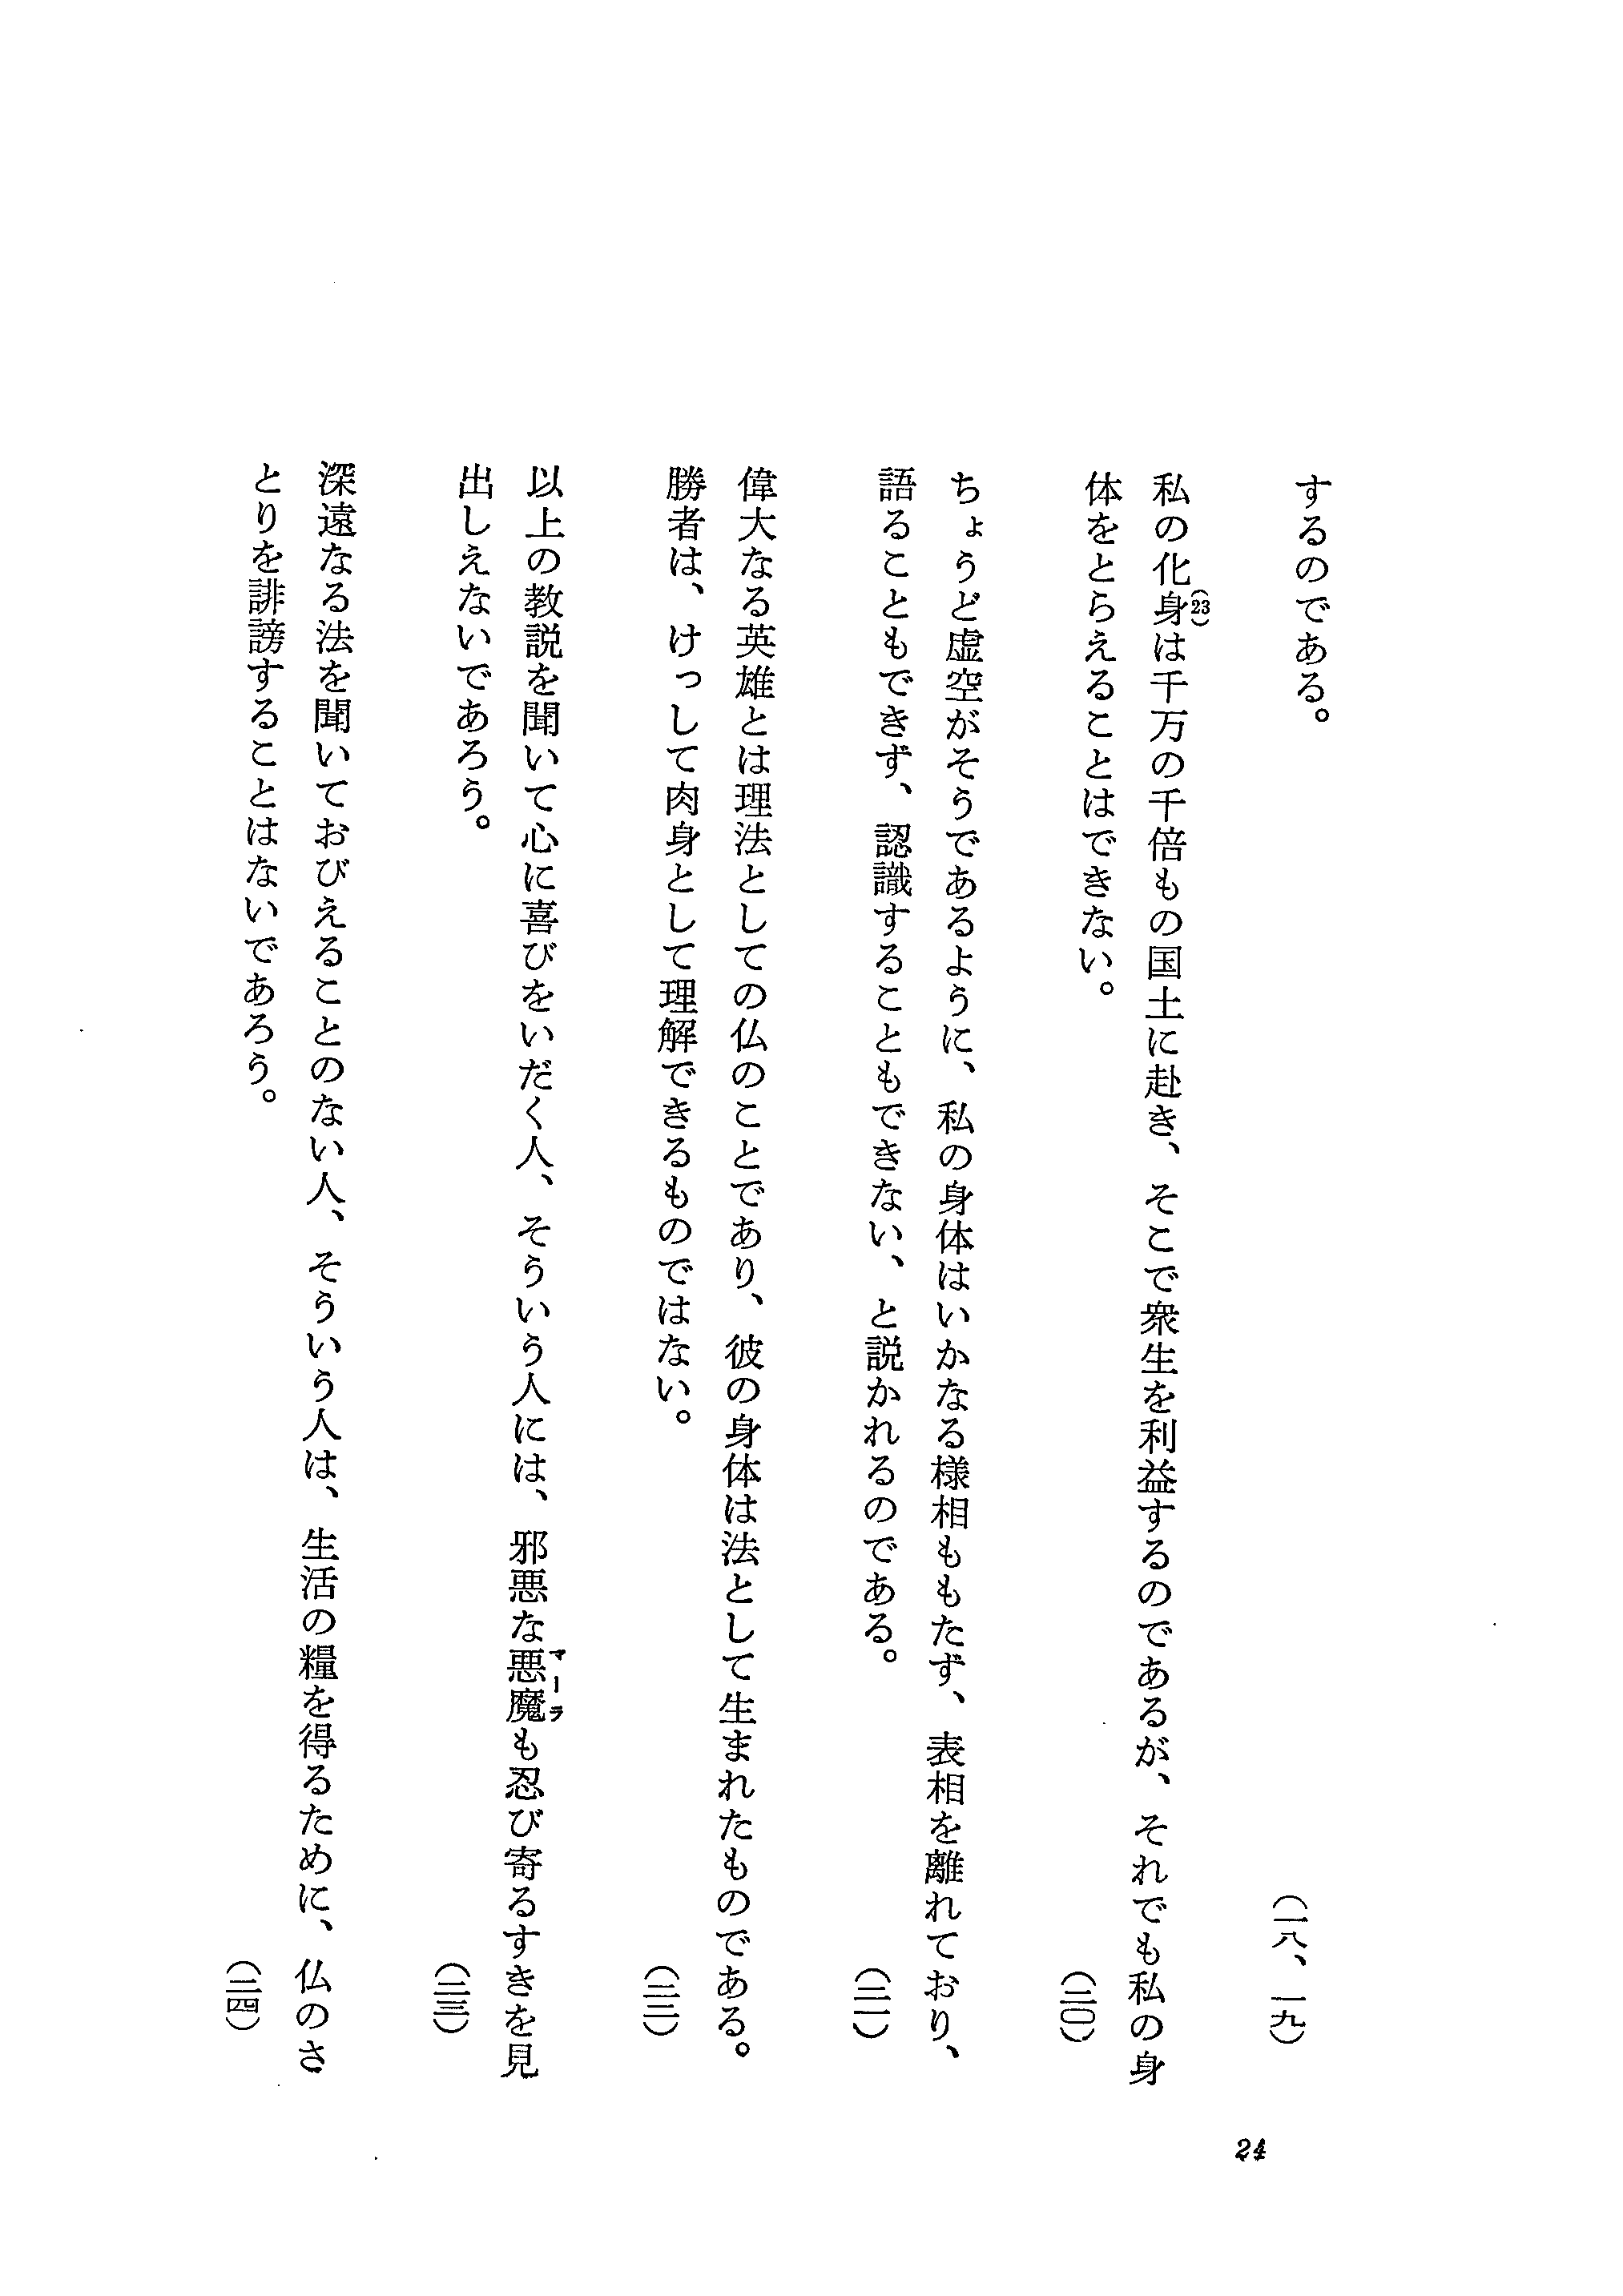 するのである。
（一八、一九）
私の化身(23)は千万の千倍もの国土に赴き、そこで衆生を利益するのであるが、それでも私の身
体をとらえることはできない。
（二〇）
ちょうど虚空がそうであるように、私の身体はいかなる様相ももたず、表相を離れており、
語ることもできず、認識することもできない、と説かれるのである。
（二一）
偉大なる英雄とは理法としての仏のことであり、彼の身体は法として生まれたものである。
勝者は、けっして肉身として理解できるものではない。
（二二）
以上の教説を聞いて心に喜びをいだく人、そういう人には、邪悪な悪魔マーラも忍び寄るすきを見
出しえないであろう。
（二三）
深遠なる法を聞いておびえることのない人、そういう人は、生活の糧を得るために、仏のさ
とりを誹謗することはないであろう。
（二四）
24